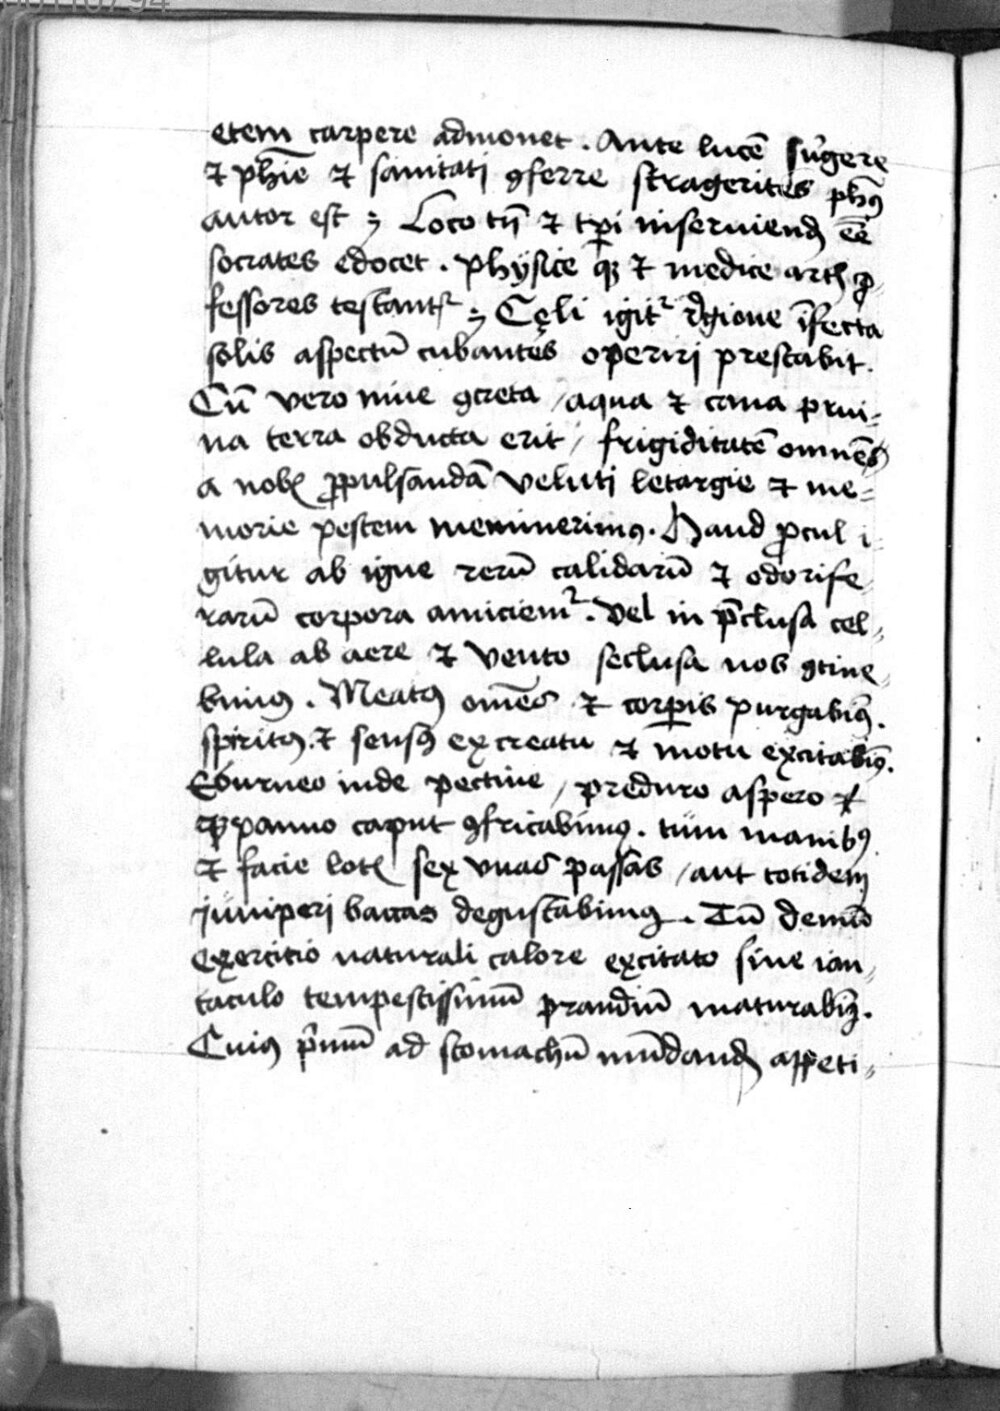 etem carpere admonet. Ante lucē sūgere
⁊ ph̄ie ⁊ sanitati ꝯferre stragerites ph̄us
autor est ; Loco tn̄ ⁊ tp̄i inseruiend̄ eē
socrates edocet. physice qꝫ ⁊ medice artis ꝓ„
fessores testantʳ ; Cęli igitʳ rḡione īfecta
solis aspectū cubantes operiri prestabit.
Cū vero niue ꝯcreta / aqua ⁊ cana prui„
na terra obducta erit / frigiditatē omnē
a nobis ꝓpulsandā veluti letargie ⁊ me„
morie pestem meminerimꝰ. Haud ꝓcul i„
gitur ab igne rerū calidarū ⁊ odorife„
rarū corpora amiciemʳ. Vel in p̄clusa cel„
lula ab aere ⁊ vento seclusa nos ꝯtine„
bimꝰ. Meatꝰ om̄es ⁊ corꝑis purgabimꝰ.
spiritꝰ. ⁊ sensꝰ excreatu ⁊ motu excitabimꝰ.
Eburneo inde pectine / preduro aspero ⁊
panno caput ꝯfricabimꝰ. tum manibꝰ
⁊ facie lotis sex vuas passas / aut totidem
juniperi baccas degustabimꝰ. Tū demū
exercitio naturali calore excitato sine ian„
taculo tempestissimū prandiū maturabimꝰ.
Cuiꝰ pͥmū ad stomachū mūdand̄ appeti„